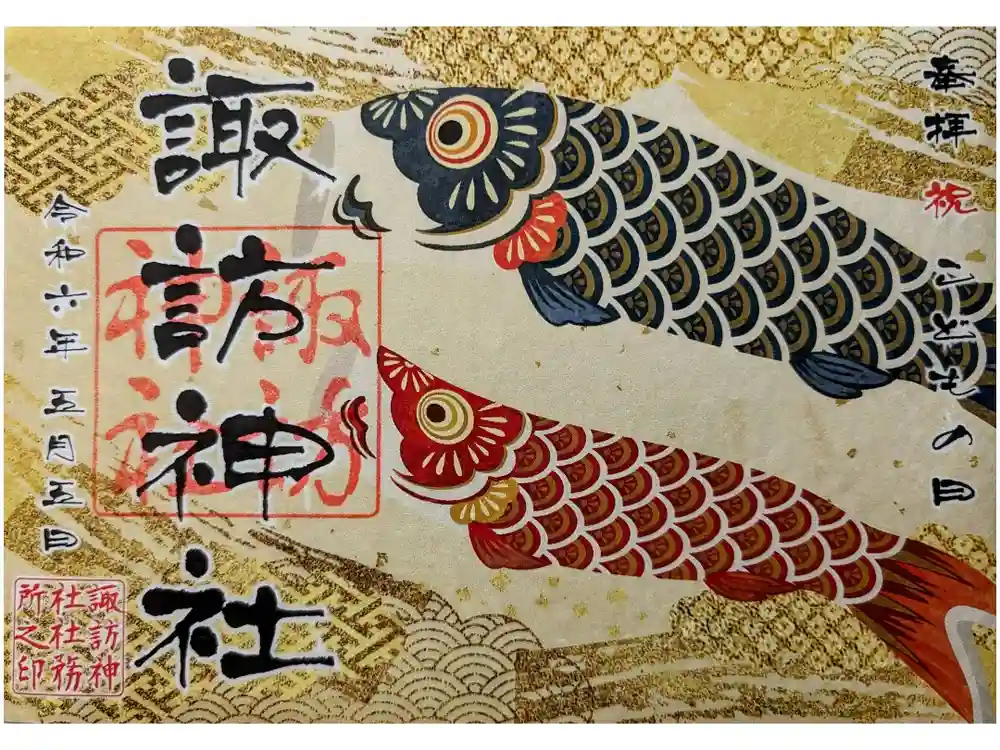 奉拝 祝 こどもの日
諏訪神社
諏訪
神社
令和六年 五月五日
諏訪神
社社務
所之印